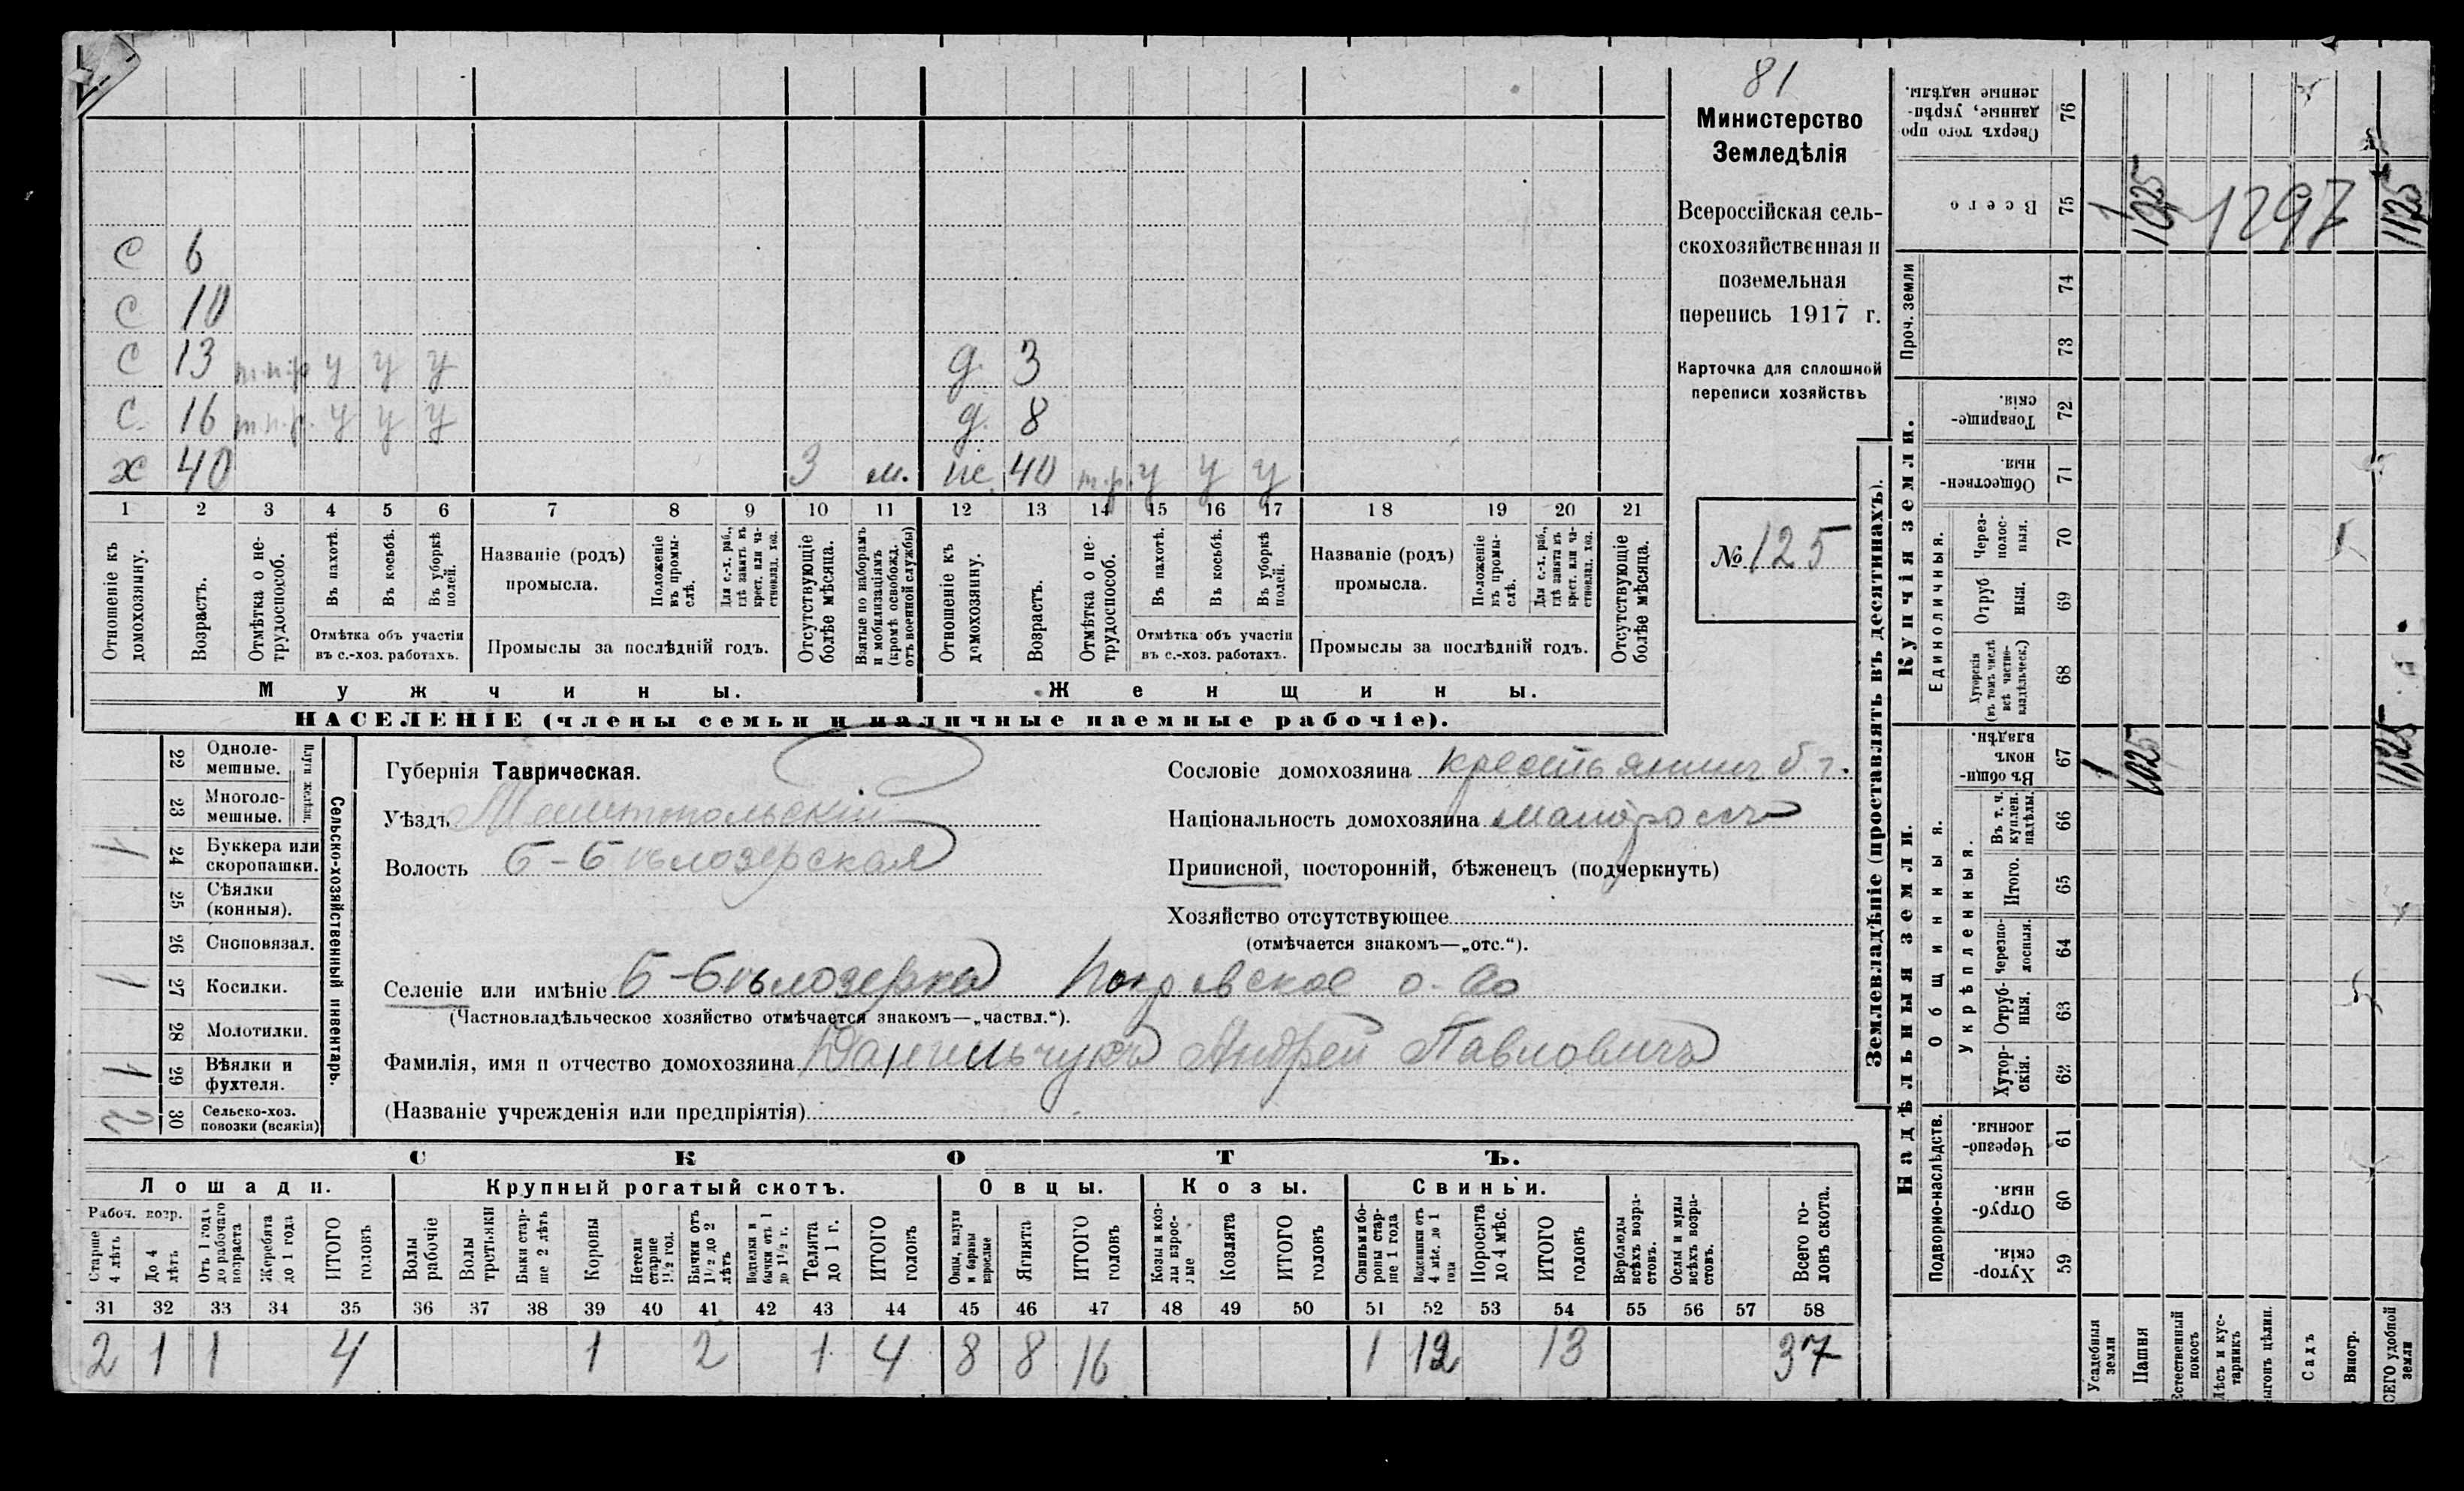 81
Министерство
Земледѣлія
Всероссійская сель-
скохозяйственная и
поземельная
перепись 1917 г.
Карточка для сплошной
переписи хозяйствъ
№ 125
с 6
с 10
с 13 т.п.р у у у д. 3
с. 16 т.п.р. у у у д. 8
х 40 3 м. ж. 40 т.р. у у у
1 2 3 4 5 6 7 8 9 10 11 12 13 14 15 16 17 18 19 20 21
Отношеніе къ домохозяину.
Возрастъ.
Отмѣтка о не-трудоспособ.
Въ пахотѣ.
Въ косьбѣ.
Въ уборкѣ полей.
Отмѣтка объ участіи
въ с.-хоз. работахъ.
Названіе (родъ)
промысла.
Положеніе въ промы-слѣ.
Для с.-х. раб., гдѣ занятъ въ крест. или ча-стновлад. хоз.
Промыслы за послѣдній годъ.
Отсутствующіе болѣе мѣсяца.
Взятые по наборамъ и мобилизаціямъ (кромѣ освобожд. отъ военной службы)
Отношеніе къ домохозяину.
Возрастъ.
Отмѣтка о не-трудоспособ.
Въ пахотѣ.
Въ косьбѣ.
Въ уборкѣ полей.
Отмѣтка объ участіи
въ с.-хоз. работахъ.
Названіе (родъ)
промысла.
Положеніе въ промы-слѣ.
Для с.-х. раб., гдѣ занята въ крест. или ча-стновлад. хоз.
Промыслы за послѣдній годъ.
Отсутствующіе болѣе мѣсяца.
Мужчины. Женщины.
НАСЕЛЕНІЕ (члены семьи и наличные наемные рабочіе).
Сельско-хозяйственный инвентарь.
Плуги желѣзн.
22 Одноле-мешные.
23 Многоле-мешные.
1 24 Буккера или скоропашки.
25 Сѣялки (конныя).
26 Сноповязал.
1 27 Косилки.
28 Молотилки.
1 29 Вѣялки и фухтеля.
2 30 Сельско-хоз. повозки (всякія)
Губернія Таврическая.
Уѣздъ Мелитопольскій
Волость Б-Бѣлозерская
Сословіе домохозяина крестьянинъ б г.
Національность домохозяина малороссъ
Приписной, посторонній, бѣженецъ (подчеркнуть)
Хозяйство отсутствующее
(отмѣчается знакомъ—„отс.“).
Селеніе или имѣніе Б-Бѣлозерка Покровское о-во
(Частновладѣльческое хозяйство отмѣчается знакомъ—„частвл.“).
Фамилія, имя и отчество домохозяина Данильчукъ Андрей Павловичъ
(Названіе учрежденія или предпріятія)
СКОТЪ.
Лошади. Крупный рогатый скотъ. Овцы. Козы. Свиньи.
Рабоч. возр.
Старше 4 лѣтъ
До 4 лѣтъ
Отъ 1 года до рабочаго возраста
Жеребята до 1 года
ИТОГО головъ
Волы рабочіе
Волы третьяки
Быки стар-ше 2 лѣтъ
Коровы
Нетели старше 1½ год.
Бычки отъ 1½ до 2 лѣтъ
Телята до 1 г.
ИТОГО головъ
Овцы, валухи и бараны взрослые
Ягнята
ИТОГО головъ
Козы и коз-лы взрос-лые
Козлята
ИТОГО головъ
Свиньи и бо-ровы стар-ше 1 года
Поросята до 4 мѣс.
ИТОГО головъ
Верблюды всѣхъ возра-стовъ.
Ослы и мулы всѣхъ возра-стовъ.
Всего го-ловъ скота.
31 32 33 34 35 36 37 38 39 40 41 42 43 44 45 46 47 48 49 50 51 52 53 54 55 56 57 58
2 1 1 4 1 2 1 4 8 8 16 1 12 13 37
Землевладѣніе (проставлять въ десятинахъ).
Надѣльныя земли.
Купчія земли.
Проч. земли
Сверхъ того про-данные, укрѣп-ленные надѣлы. 76
Всего 75 1 1025 1297 1125
74
73
Товарище-скія. 72
Обществен-ныя. 71
Единоличныя.
Через-полос-ныя. 70
Отруб-ныя. 69
Хуторскія (въ томъ числѣ всѣ частно-владѣльческ.) 68
Общинныя.
Въ общи-номъ владѣн. 67 1 1025 1125
Укрѣпленныя.
Въ т. ч. куплен. надѣлы. 66
Итого. 65
Черезпо-лосныя. 64
Отруб-ныя. 63
Хутор-скія. 62
Подворно-наслѣдств.
Черезпо-лосныя. 61
Отруб-ныя. 60
Хутор-скія. 59
Усадебныя земли
Пашня
Естественный покосъ
Лѣсъ и кус-тарникъ
Садъ
Виногр.
ВСЕГО удобной земли